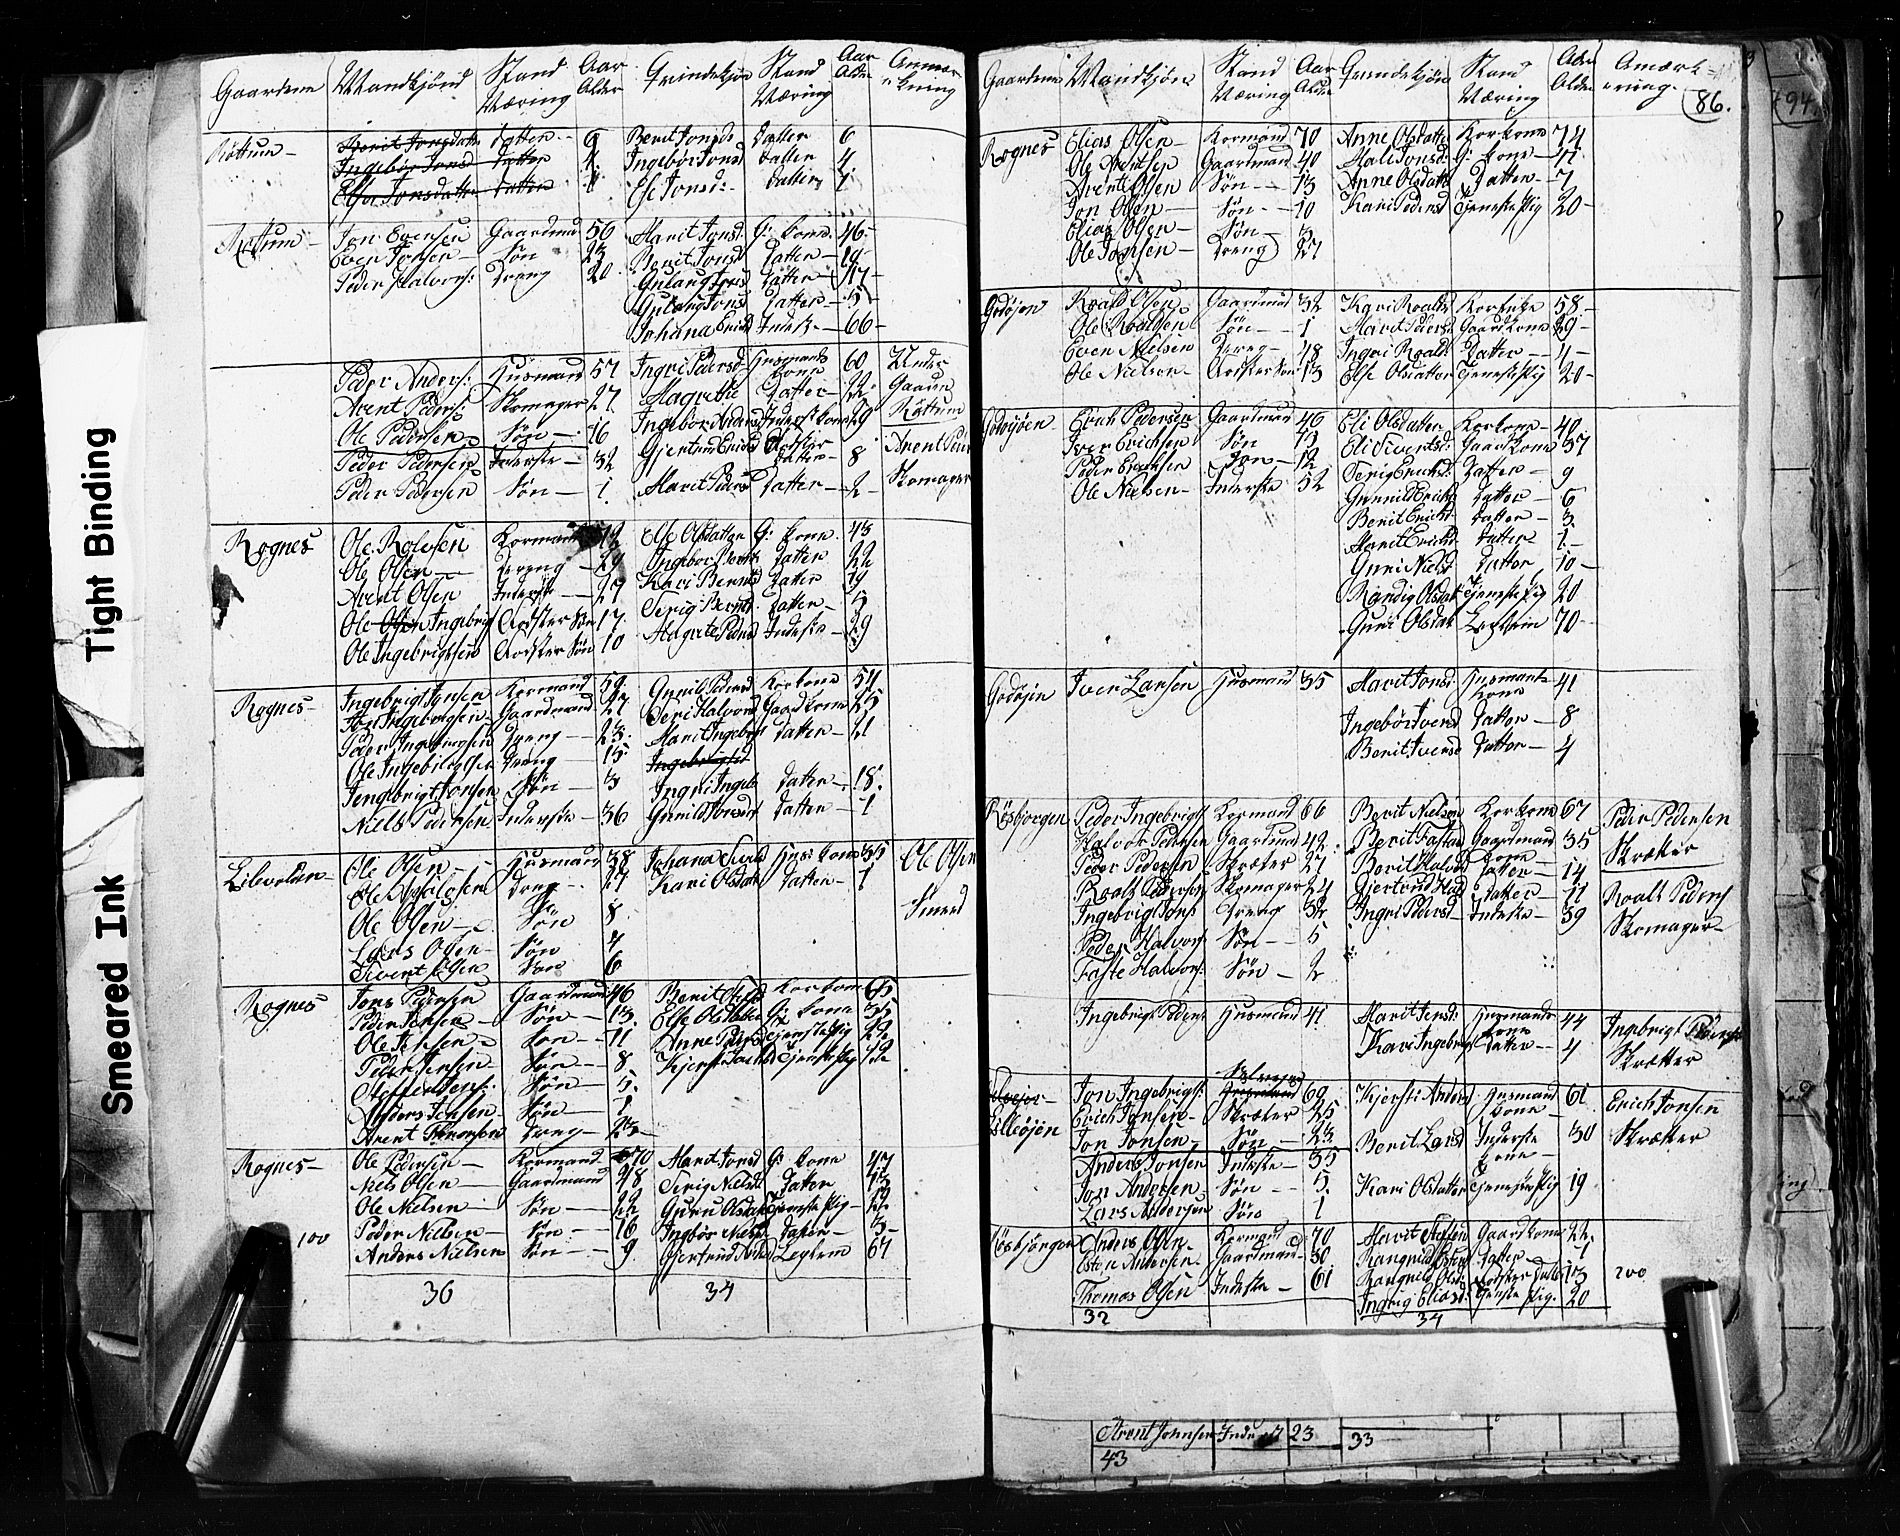 Tight Binding
Smeared Ink
Gaardene Mandkjönd Stand Næring Aar Alder Qvindekjön Stand Næring Aar Alder Anmærkning
Röttum — Berit Jonsdatt Datter 9 Berit Jonsd: Datter 6
Ingebor Jonsd Datter 4 Ingebor Jonsd Datter 4
Else Jonsdatter Datter 1 Else Jonsd: Datter 1
Röttum — Jon Evensen Gaardmand 50 Marit Jonsd G: kone 46
Even Jonsen Sön 23 Berit Jonsd Datter 19
Peder Halvors: Dreng 20 Gulaug Jonsd Datter 17
Gulaug Jonsd Datter 5
Johana Erichsd Inderste 66
Peder Anders: Husmand 57 Ingri Pedersd Husmands kone 60 Under
Arent Peders: Skomager 27 Magrethe Datter 22 Gaarden
Ole Pedersen Sön 16 Ingebor Anders Inderst kone 29 Röttum
Peder Pedersen Inderste 32 Gjertrud Erichsd Datter 8 Arent Peders
Peder Pedersen Sön 1 Marit Peders Datter 2 Skomager
Rognes Ole Rolesen Kormand 72 Else Olsdatter G: kone 43
Ole Olsen Dreng 29 Ingebor Berntsd Datter 22
Arent Olsen Inderste 27 Kari Berntsd Datter 19
Ole Olsen Ingebrigt Sön 17 Serig Berntsd Datter
Ole Ingebrigtsen Sön 10 Magrete Pedersd Inderste 29
Rognes — Ingebrigt Jonsen Kormand 59 Gunild Pedersd Korkone 54
Jon Ingebrigtsen Gaardmand 27 Seri Halvorsd Gaardkone 25
Peder Ingebrigtsen Dreng 23 Marit Ingebrigt Datter 21
Ole Ingebrigtsen Dreng 15 Ingebrigtsd
Ingebrigt Jonsen Sön 3 Ingri Ingeb Datter 18
Niels Pedersen Inderste 36 Gunild Jonsd Datter 1
Lilevolden Ole Olsen Husmand 38 Johana Siversd Hus: kone 35 Ole Olsen
Dreng 17 Kari Olsdatter Datter 1 Smed
Ole Olsen Sön 8
Lars Olsen Sön 4
Sivert Olsen Sön 6
Rognes Jens Pedersen Gaardmand 46 Berit Olsd Korkone
Peder Jensen Sön 13 Else Olsdatter G: kone 35
Ole Jensen Sön 11 Anne Pedersd Tjenste Pig 22
Peder Jensen Sön 8 Kjersti Tjenste Pig 12
Steffen Jens: Sön 5
Anders Jensen Sön 1
Arent Dreng 23
Rognes — Ole Pedersen Kormand 70 Marit Jonsd G: kone 47
Niels Olsen Gaardmand 48 Serig Nielsd Datter 13
Ole Nielsen Sön 22 Guru Olsdatter Tjenste Pig 22
Peder Nielsen Sön 16 Ingebor Nielsd Datter 3
100 Anders Nielsen Sön 9 Gjertrud Leglem 67
36 34
Gaardene Mandkjön Stand Næring Aar Alder Qvindekjön Stand Næring Alder Anmærkning
86.
94
Rognes Elias Olsen Kormand 70 Anne Olsdatter Korkone 74
Ole Arentsen Gaardmand 40 Mali Jonsd: G: kone 41
Arent Olsen Sön 13 Anne Olsdatt Datter 7
Jon Olsen Sön 10 Kari Pedersd Tjeneste Pig 20
Elias Olsen Sön 3
Ole Jonsen Dreng 27
Godöjen Roald Olsen Gaardmand 32 Kari Roalds 58
Ole Roaldsen Sön 1 Marit Peders Gaardkone 29
Even Nielsen Dreng 18 Ingri Roalds Datter 4
Ole Nielsen Sön 13 Else Olsdatter Tjeneste Pig 20
Godöjen Erich Pedersen Gaardmand 40 Eli Olsdatter Korkone 40
Iver Erichsen Sön 13 Eli Sivertsd: Gaardkone 37
Peder Erichsen Sön 12 Serig Erichsd: Datter 9
Ole Nielsen Inderste 52 Gunild Erichs Datter 6
Berit Erichs Datter 3
Marit Erichs Datter 1
Guri Nielsd Datter 10
Randig Olsdat Tjeneste Pig 20
Guri Olsdat Legstein 70
Godöjen Iver Larsen Husmand 35 Marit Jonsd Husmands kone 41
Ingebör Iversd Datter 8
Berit Iversd Datter 4
Rösbjorgen Peder Ingebrigt Kormand 66 Berit Nielsen Korkone 67 Peder Pedersen
Halvor Pedersen Gaardmand 42 Berit Fastad Gaardmand kone 35 Skræder
Peder Pedersen Skræder 27 Berit Halvors Datter 14
Roald Pedersen Skomager 24 Gjertrud Hald Datter 11 Roald Peders
Ingebrigt Jons Dreng 32 Ingri Pedersd Inderste 39 Skomager
Peder Halvors: Sön 5
Faste Halvors: Sön 2
Ingebrigt Peders Husmand 41 Marit Jonsd: Husmands kone 44 Ingebrigt Peders
Kari Ingebrigt Datter 4 Skrætter
Lilleöjen Jon Ingebrigt: 69 Kjersti Anders Husmand kone 61 Erich Jonsen
Erich Jonsen Skræter 25 Skrætter
Jon Jonsen Sön 23 Berit Larsd Inderste kone 30
Anders Jonsen Inderste 35
Jon Andersen Sön 5 Kari Olsdatter Tjeneste Pig 19
Lars Andersen Sön 1
Rösbjörgen Anders Olsen Kormand 70 Marit Gaardkone 22
Esten Andersen Gaardmand 30 Ragnild Estens Datter 1
Thomas Olsen Inderste 61 Ragnild Olsd: 13 200
Ingrig Eliasd: Tjenste Pig. 20
32 34
Arent Johnsen Inderst 23 33
43